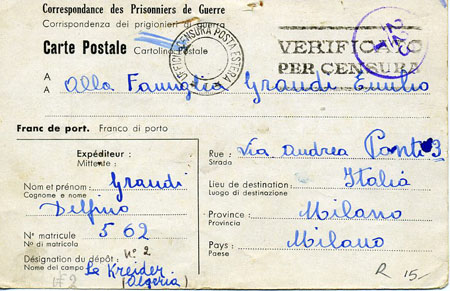 Correspondance des Prisonniers de Guerre
Corrispondenza dei prigionieri di guerra
Carte Postale Cartolina Postale
UFFICIO CENSURA POSTA ESTERA
VERIFICATO
PER CENSURA
A
A Alla Famiglia Grandi Emilio
Franc de port. Franco di porto
Expéditeur :
Mittente :
Nom et prénom : Grandi
Cognome e nome
Delfino
N° matricule 562
N° di matricola
Désignation du dépôt : N° 2
Nome del campo Le Kreider
(Algeria)
N° 2
Rue : Via Andrea Ponti 3
Strada
Lieu de destination : Italia
Luogo di destinazione
Province : Milano
Provincia
Pays : Milano
Paese
R 15-